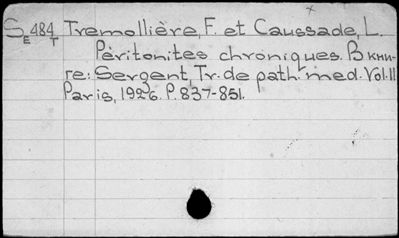 S E 484 T Tremollière, F. et Caussade, L.
Péritonites chroniques. В кни-
ге: Sergent, Tr. de path. med. Vol. II
Paris, 1926. P. 837-851.